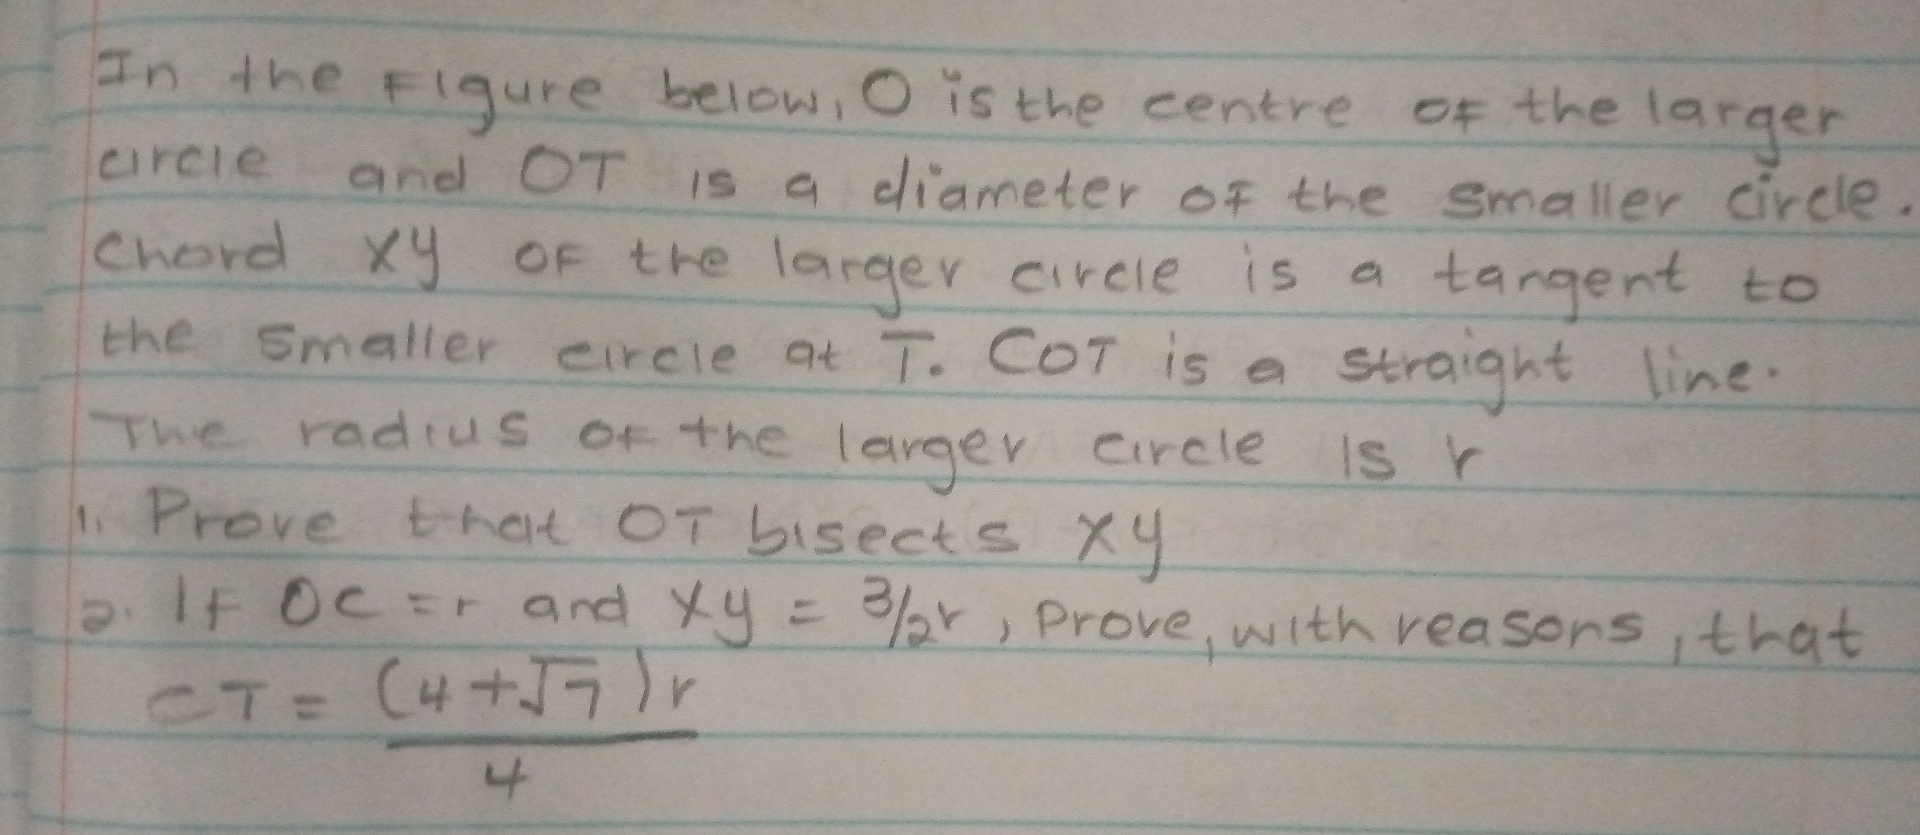 In the Figure below, O is the centre of the larger
circle and OT is a diameter of the smaller circle.
Chord XY OF the larger circle is a tangent to
the smaller circle at T. COT is a straight line.
The radius of the larger circle Is r
1. Prove that OT bisects XY
2. If OC = r and XY = 3/2r, Prove, with reasons, that
CT = (4+√7)r
4